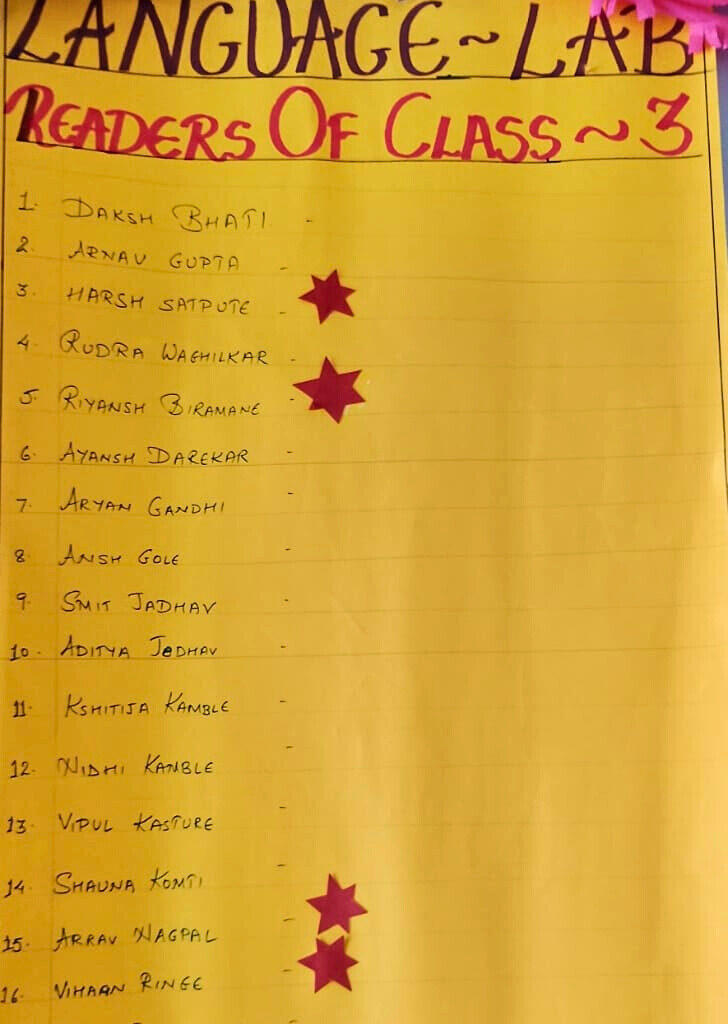 LANGUAGE ~ LAB
READERS OF CLASS ~ 3
1. DAKSH BHATI -
2. ARNAV GUPTA -
3. HARSH SATPUTE -
4. RUDRA WAGHILKAR -
5. RIYANSH BIRAMANE -
6. AYANSH DAREKAR -
7. ARYAN GANDHI -
8. ANSH GOLE -
9. SMIT JADHAV -
10. ADITYA JeDHAV -
11. KSHITIJA KAMBLE -
12. NIDHI KAMBLE -
13. VIPUL KASTURE -
14. SHAUNA KOMTI -
15. ARRAV NAGPAL -
16. VIHAAN RINGE -